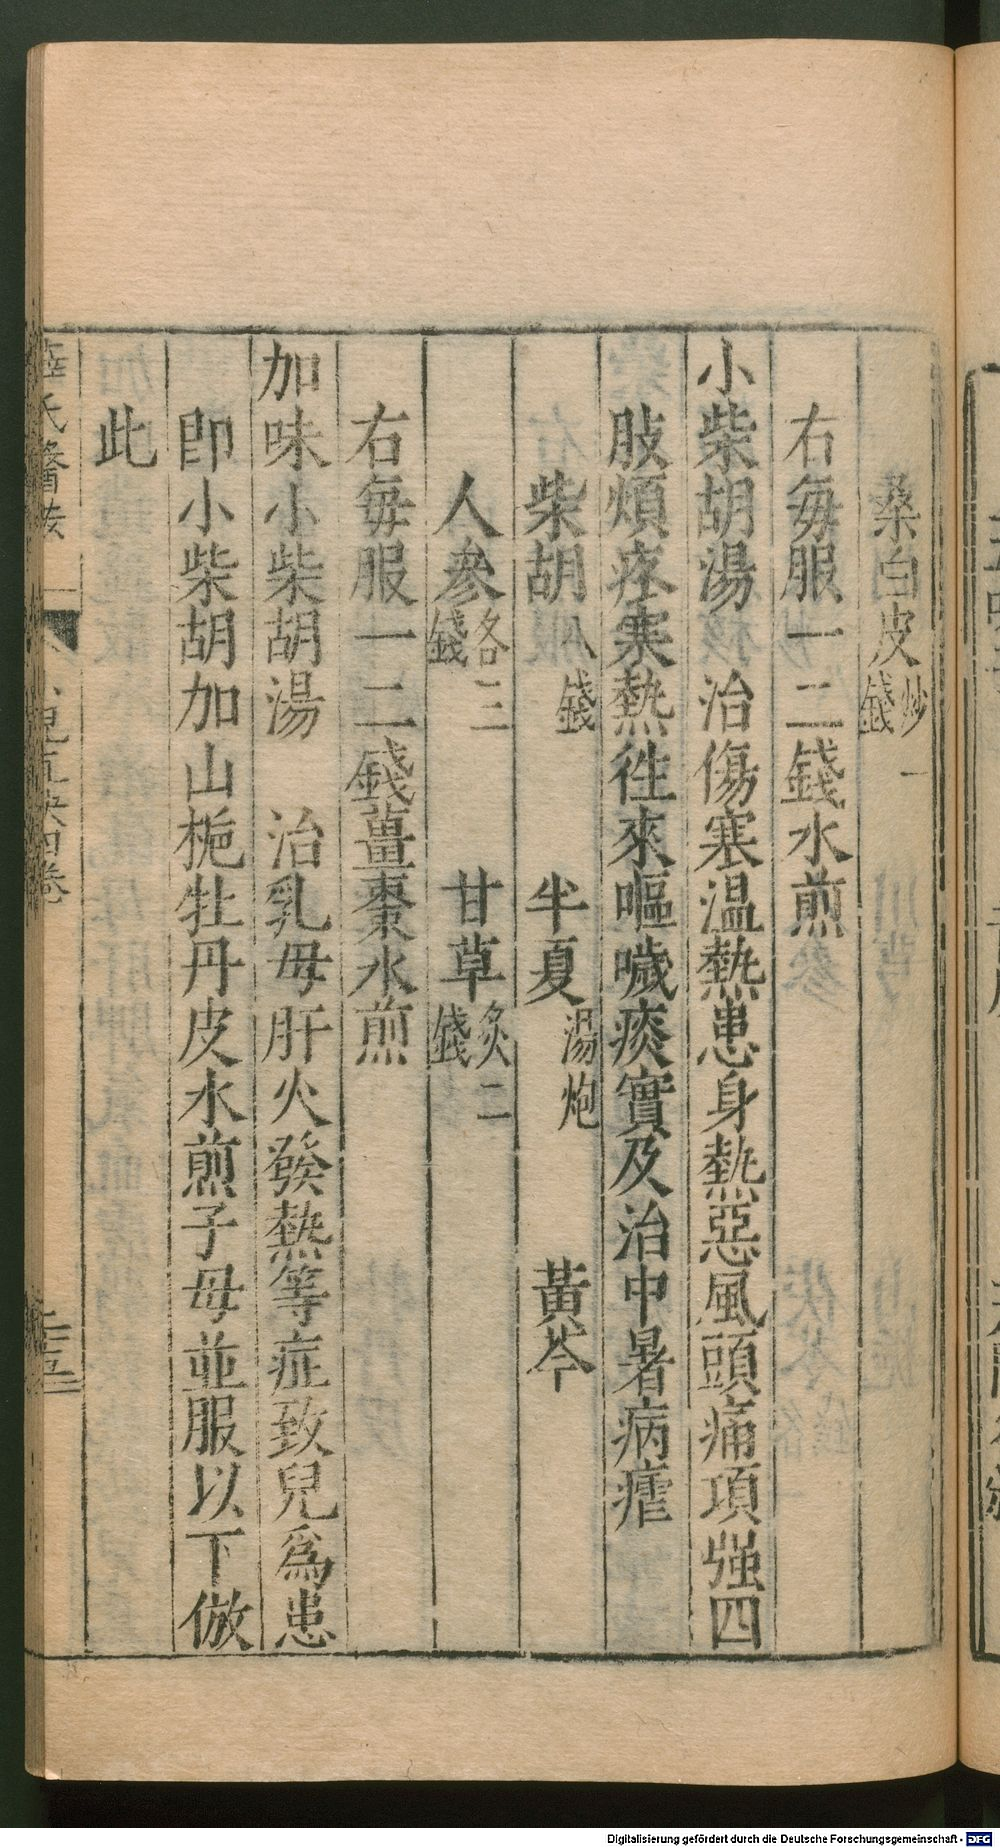 桑白皮炒一錢
右每服一二錢水煎
小柴胡湯　治傷寒温熱患身熱惡風頭痛項强四
肢煩疼寒熱徃來嘔噦痰實及治中暑病瘧
柴胡八錢　半夏湯炮　黃芩
人參各三錢　甘草炙二錢
右每服一二錢薑棗水煎
加味小柴胡湯　治乳母肝火發熱等症致兒爲患
即小柴胡加山梔牡丹皮水煎子母並服以下倣
此
薛氏醫按
四卷
Digitalisierung gefördert durch die Deutsche Forschungsgemeinschaft - DFG